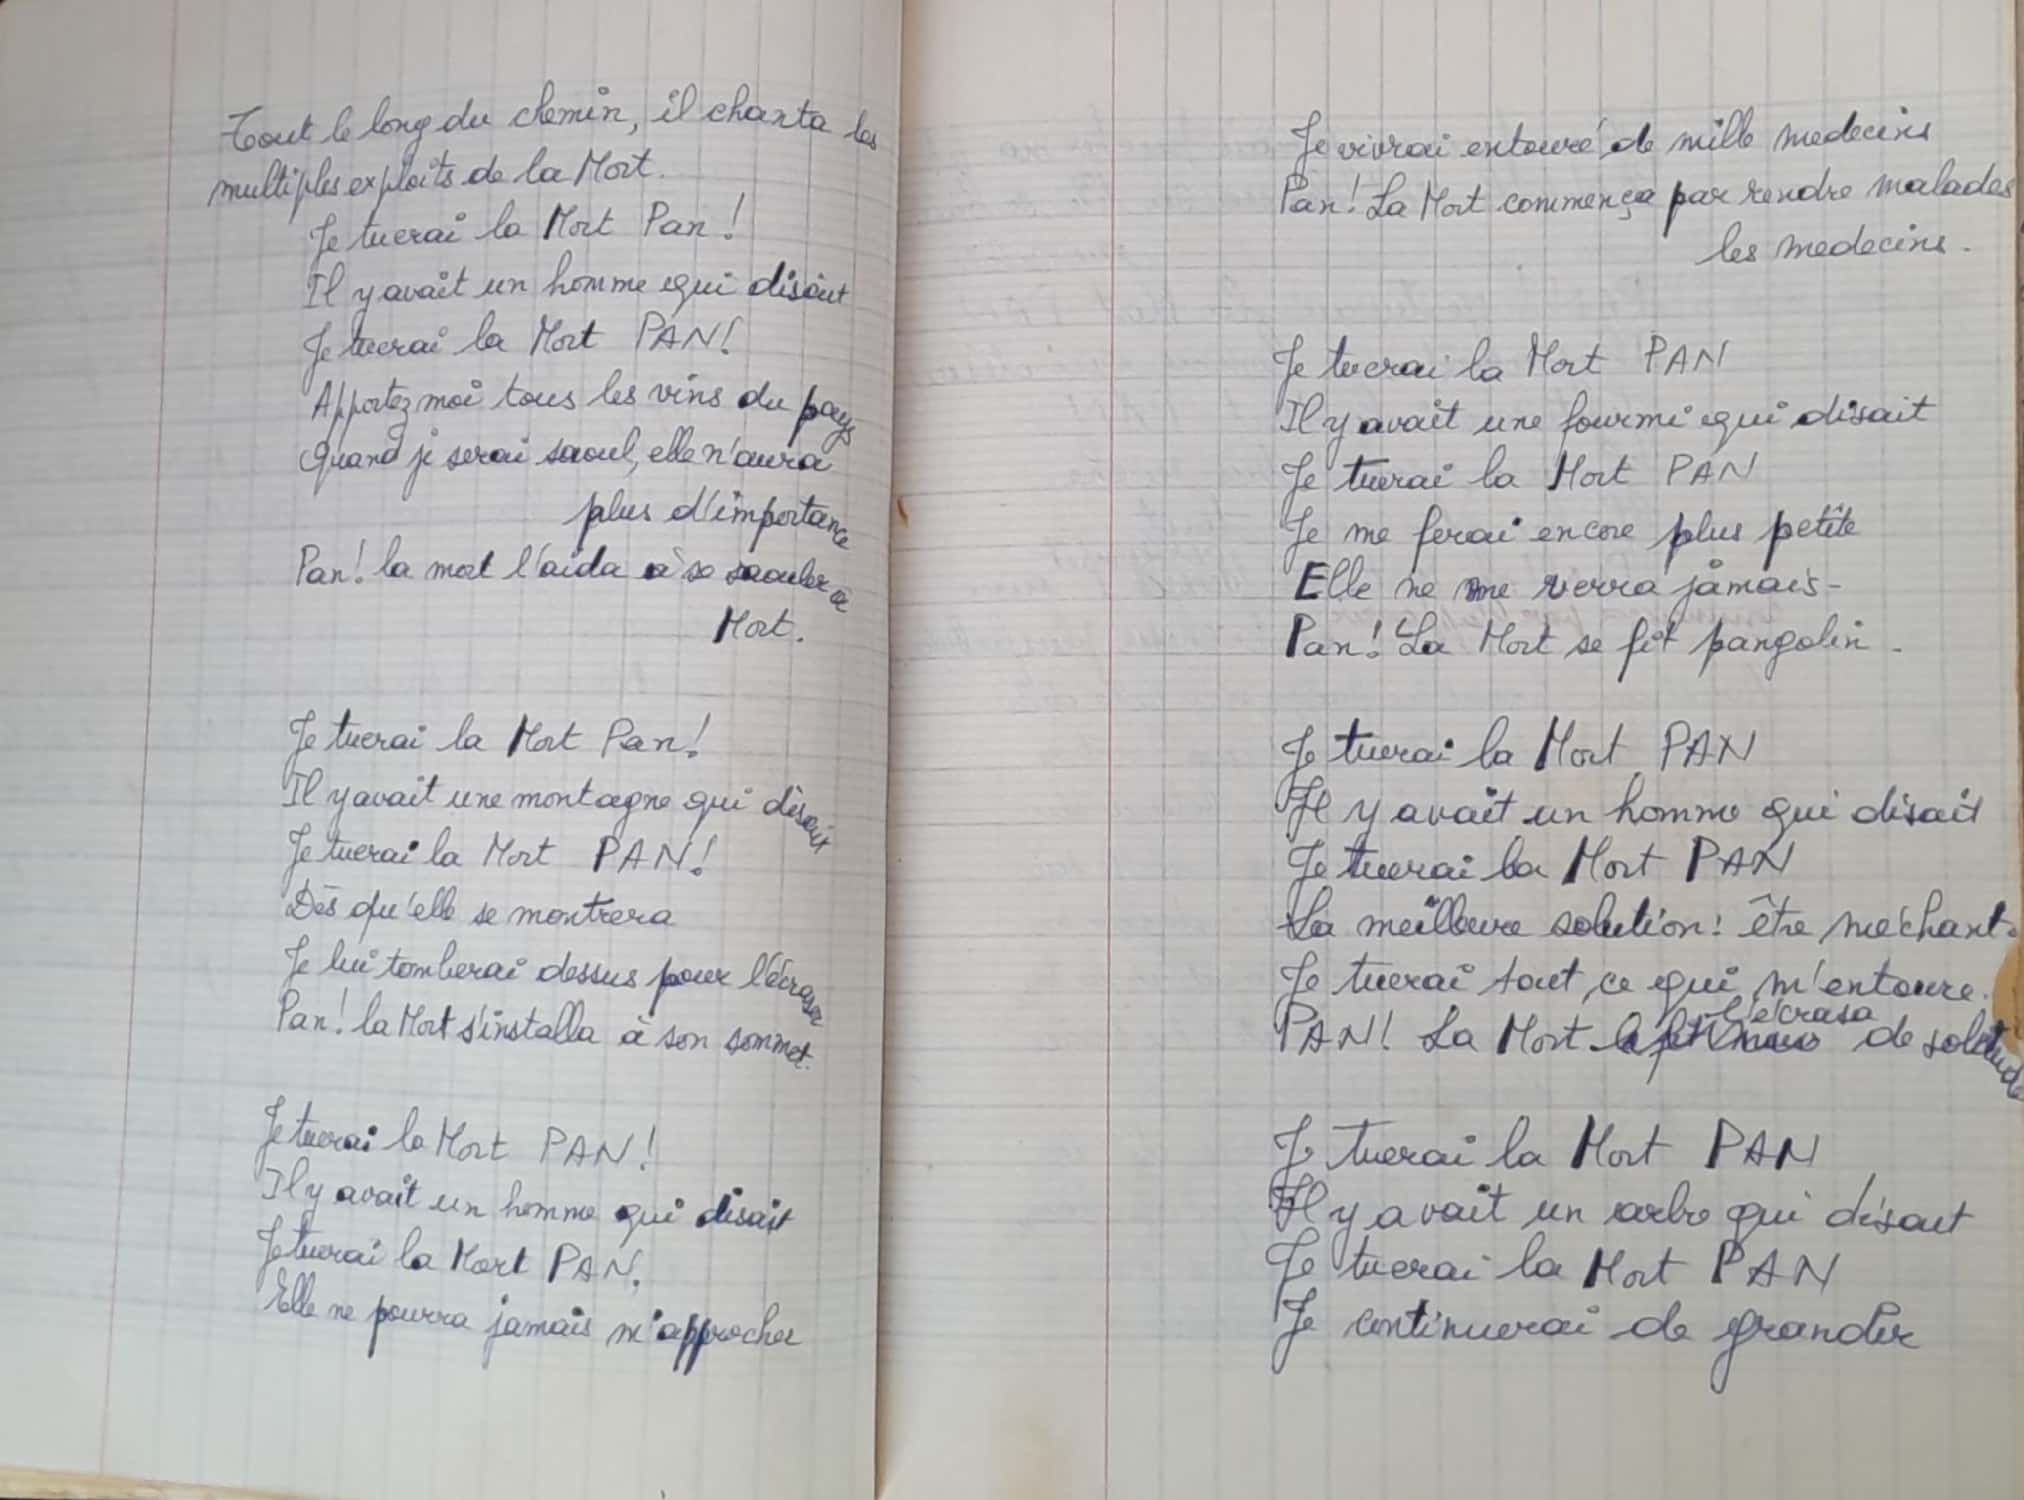 Tout le long du chemin, il chanta les
multiples exploits de la Mort.
Je tuerai la Mort Pan !
Il y avait un homme qui disait
Je tuerai la Mort PAN!
Apportez moi tous les vins du pays
Quand je serai saoul, elle n'aura
plus d'importance
Pan! la mort l'aida à se saouler à
Mort.
Je tuerai la Mort Pan!
Il y avait une montagne qui disait
Je tuerai la Mort PAN!
Dès qu'elle se montrera
Je lui tomberai dessus pour l'écraser
Pan! la Mort s'installa à son sommet.
Je tuerai la Mort PAN!
Il y avait un homme qui disait
Je tuerai la Mort PAN!
Elle ne pourra jamais m'approcher
Je vivrai entouré de mille medecins
Pan! La Mort commença par rendre malades
les medecins.
Je tuerai la Mort PAN
Il y avait une fourmi qui disait
Je tuerai la Mort PAN
Je me ferai encore plus petite
Elle ne me verra jamais-
Pan! La Mort se fit pangolin.
Je tuerai la Mort PAN
Il y avait un homme qui disait
Je tuerai la Mort PAN
La meilleure solution: être méchant.
Je tuerai tout ce qui m'entoure.
PAN! La Mort l'écrasa de solitude
Je tuerai la Mort PAN
Il y avait un arbre qui disait
Je tuerai la Mort PAN
Je continuerai de grandir